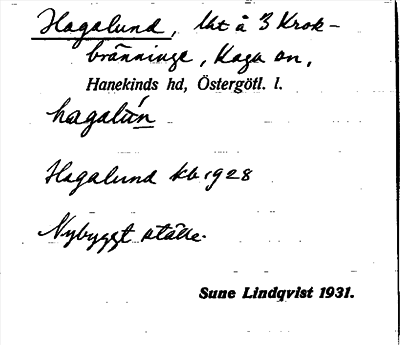 Hagalund, lht å 3 Krok-
bränninge, Kaga sn,
Hanekinds hd, Östergötl. l.
hagalún
Hagalund kb 1928
Nybyggt ställe.
Sune Lindqvist 1931.